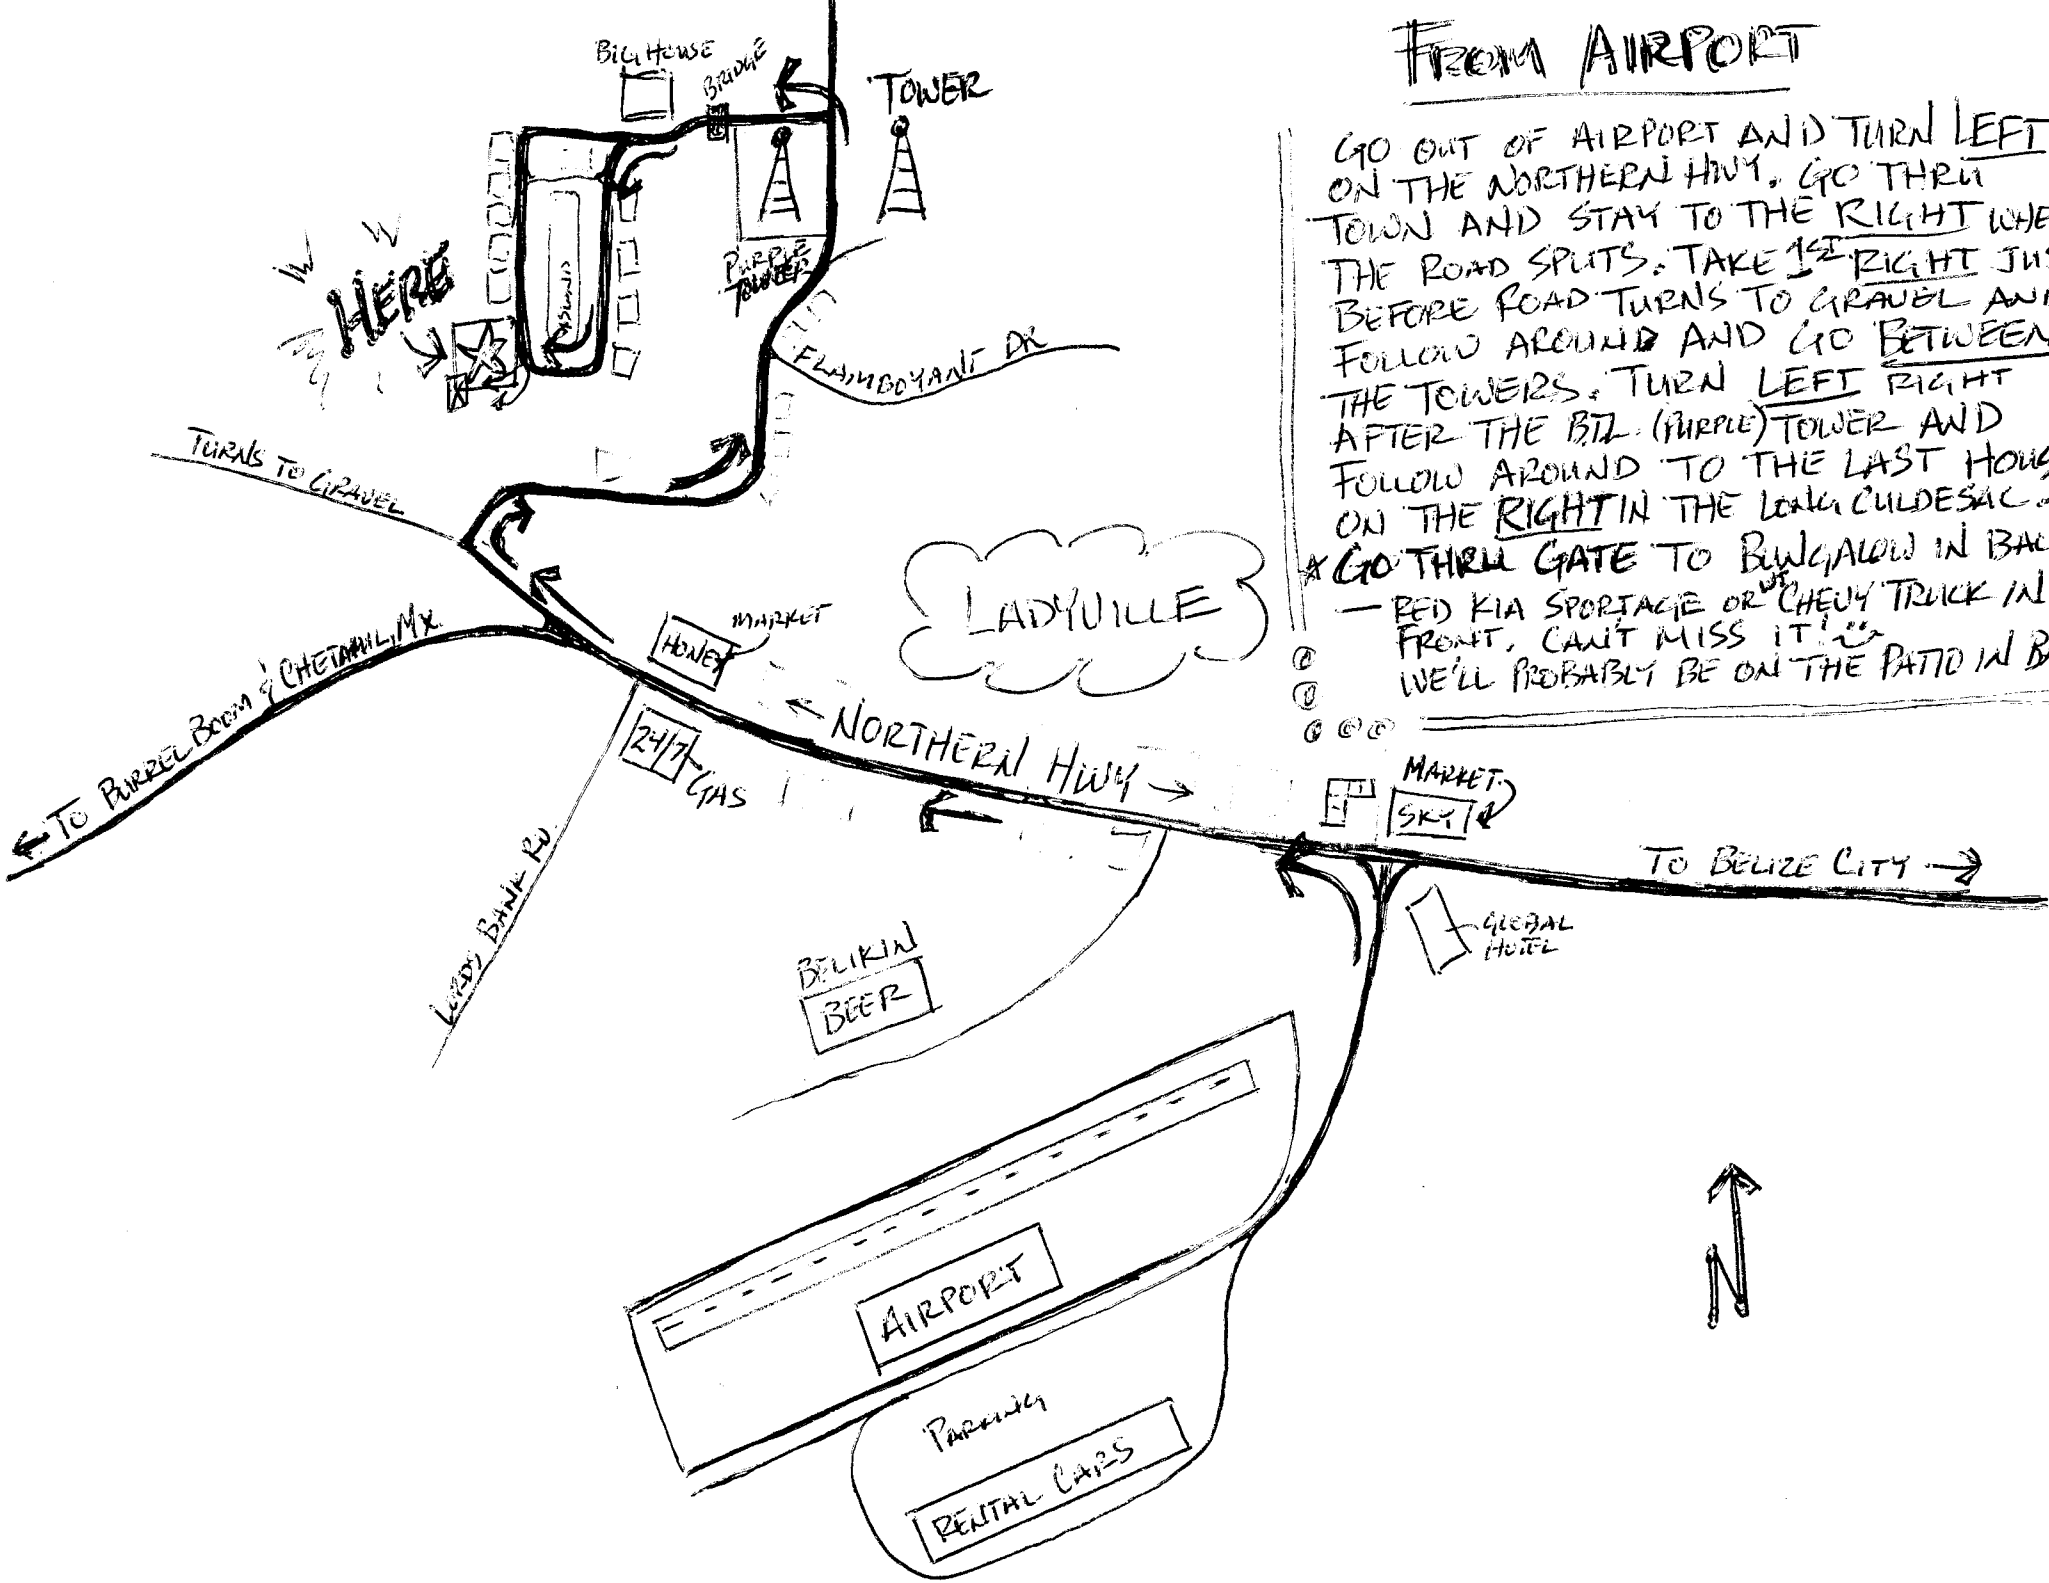 FROM AIRPORT
GO OUT OF AIRPORT AND TURN LEFT
ON THE NORTHERN HWY. GO THRU
TOWN AND STAY TO THE RIGHT WHE
THE ROAD SPLITS. TAKE 1ST RIGHT JUS
BEFORE ROAD TURNS TO GRAVEL AND
FOLLOW AROUND AND GO BETWEEN
THE TOWERS. TURN LEFT RIGHT
AFTER THE BTL (PURPLE) TOWER AND
FOLLOW AROUND TO THE LAST HOUS
ON THE RIGHT IN THE LONG CULDESAC.
GO THRU GATE TO BUNGALOW IN BAC
— RED KIA SPORTAGE OR WT CHEVY TRUCK IN
FRONT. CAN'T MISS IT!
WE'LL PROBABLY BE ON THE PATIO IN BA
BIG HOUSE
BRIDGE
TOWER
PURPLE
TOWER
ISLAND
HERE
FLAMBOYANT DR
TURNS TO GRAVEL
LADYVILLE
MARKET
HONEY
TO BURREL BOOM & CHETAMIL, MX
24/7
GAS
NORTHERN HWY
MARKET
SKY
TO BELIZE CITY
LORDS BANK RD.
GLOBAL
HOTEL
BELIKIN
BEER
AIRPORT
PARKING
RENTAL CARS
N